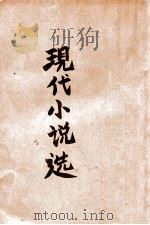 現代小说选
mtoou.info